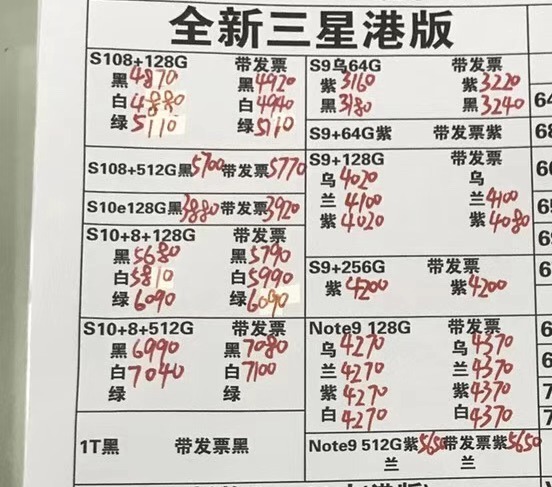 全新三星港版
S108+128G 带发票
黑4870 黑4920
白4880 白4940
绿5110 绿5110
S108+512G黑5700带发票5770
S10e128G黑3880带发票3920
S10+8+128G 带发票
黑5680 黑5790
白5810 白5990
绿6090 绿6090
S10+8+512G 带发票
黑6990 黑7080
白7040 白7100
绿 绿
1T黑 带发票黑
S9乌64G 带发票
紫3160 紫3220
黑3180 黑3240
S9+64G紫 带发票紫
S9+128G 带发票
乌4020 乌
兰4100 兰4100
紫4020 紫4080
S9+256G 带发票
紫4200 紫4200
Note9 128G 带发票
乌4270 乌4370
兰4270 兰4370
紫4270 紫4370
白4270 白4370
Note9 512G紫5650带发票紫5650
兰 兰